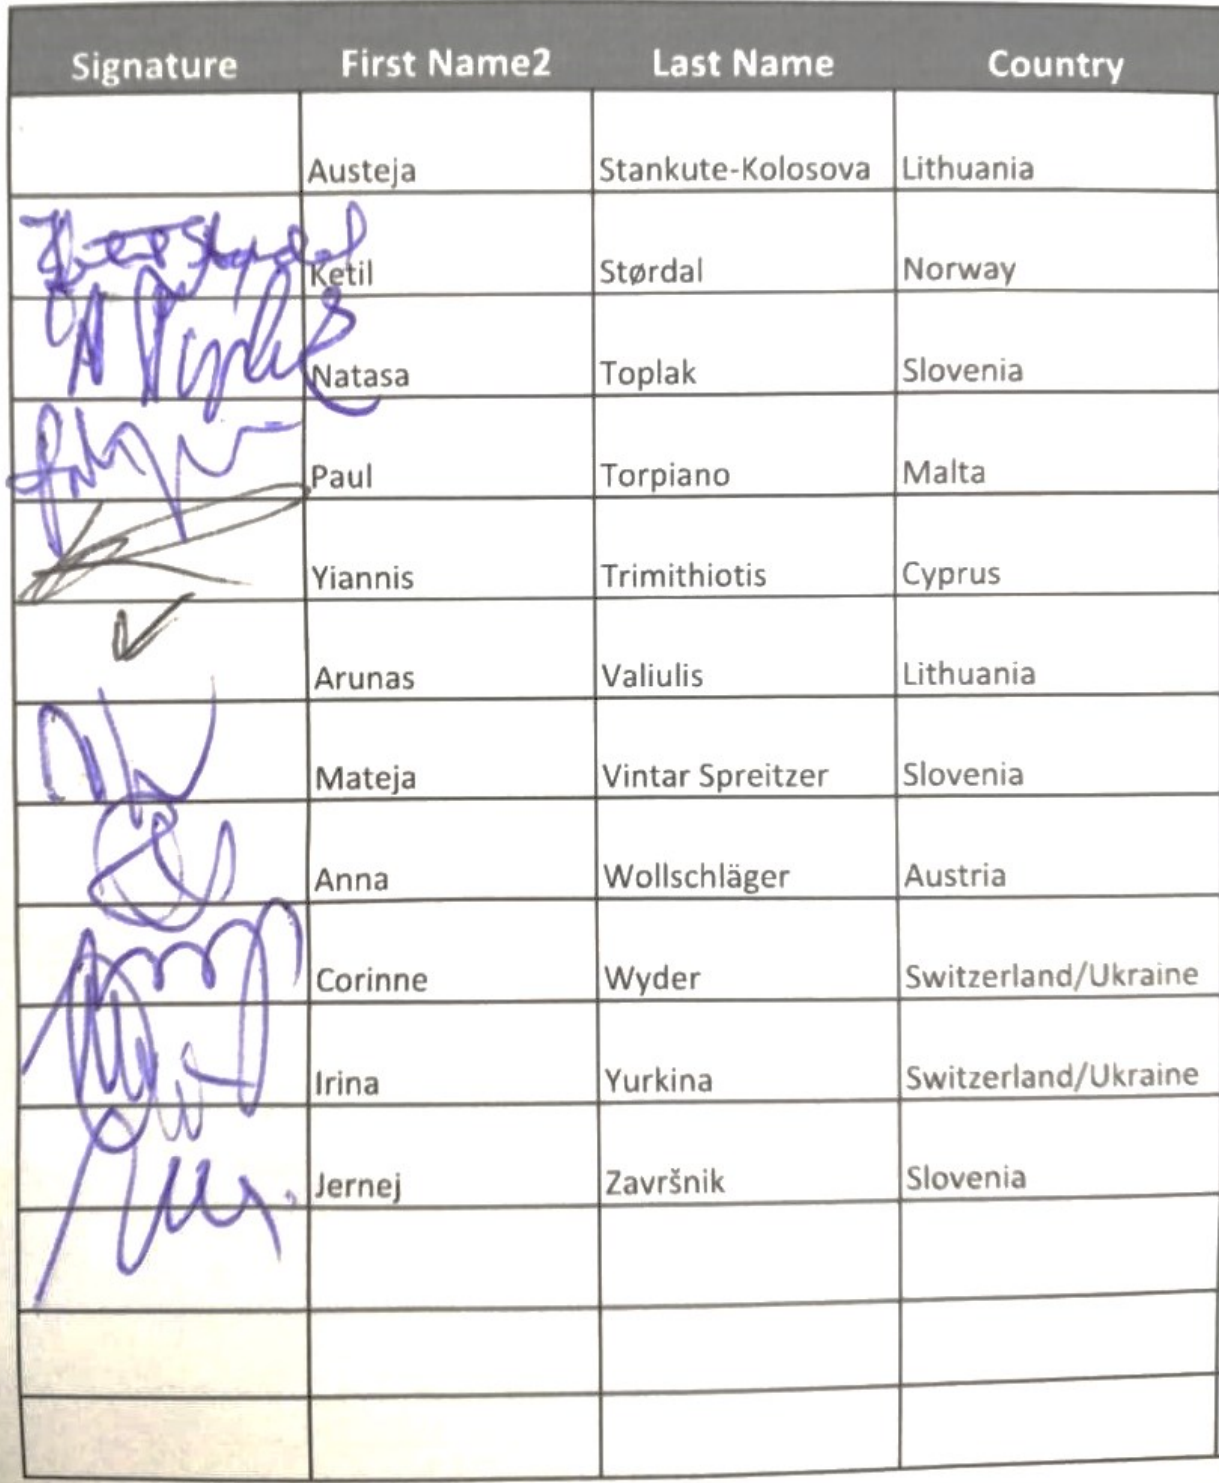 Signature First Name2 Last Name Country
Austeja Stankute-Kolosova Lithuania
Ketil Størdal Norway
Natasa Toplak Slovenia
Paul Torpiano Malta
Yiannis Trimithiotis Cyprus
Arunas Valiulis Lithuania
Mateja Vintar Spreitzer Slovenia
Anna Wollschläger Austria
Corinne Wyder Switzerland/Ukraine
Irina Yurkina Switzerland/Ukraine
Jernej Završnik Slovenia